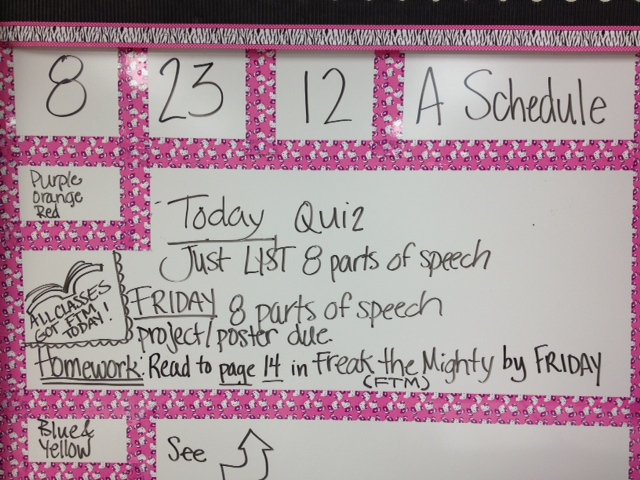 8 23 12 A Schedule
Purple
Orange
Red
Today Quiz
Just LIST 8 parts of speech
ALL CLASSES
GOT FTM
TODAY!
FRIDAY 8 parts of speech
project/poster due.
Homework: Read to page 14 in Freak the Mighty by FRIDAY
(FTM)
Blue &
Yellow
See